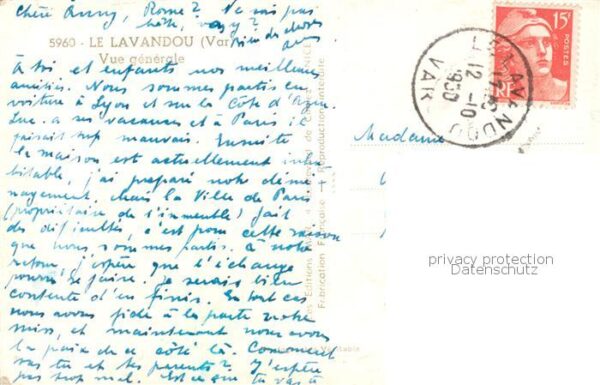 Chère Anny, Rome? Je sais pas
5960 - LE LAVANDOU (Var)
Vue générale
A toi et enfants nos meilleures
amitiés. Nous sommes partis en
voiture à Lyon et sur la Côte d'Azur
Luc a ses vacances et à Paris il
faisait trop mauvais. Ensuite
la maison est actuellement inha
bitable, j'ai préparé notre démé
nagement, mais la Ville de Paris
(propriétaire de l'immeuble) fait
des difficultés, c'est pour cette raison
que nous sommes partis. A notre
retour, j'espère que l'échange
pourra se faire. Je serais bien
contente d'en finir. En tout cas
nous avons fichu à la porte notre
miss, et maintenant nous avons
la paix de ce côté là. Comment
vas tu et tes parents? J'espère
pas trop mal. Est-ce que tu vas à
Fabrication Française - Reproduction interdite
Madame
LE LAVANDOU
12 -10
1950
VAR
15F
POSTES
RF
privacy protection
Datenschutz